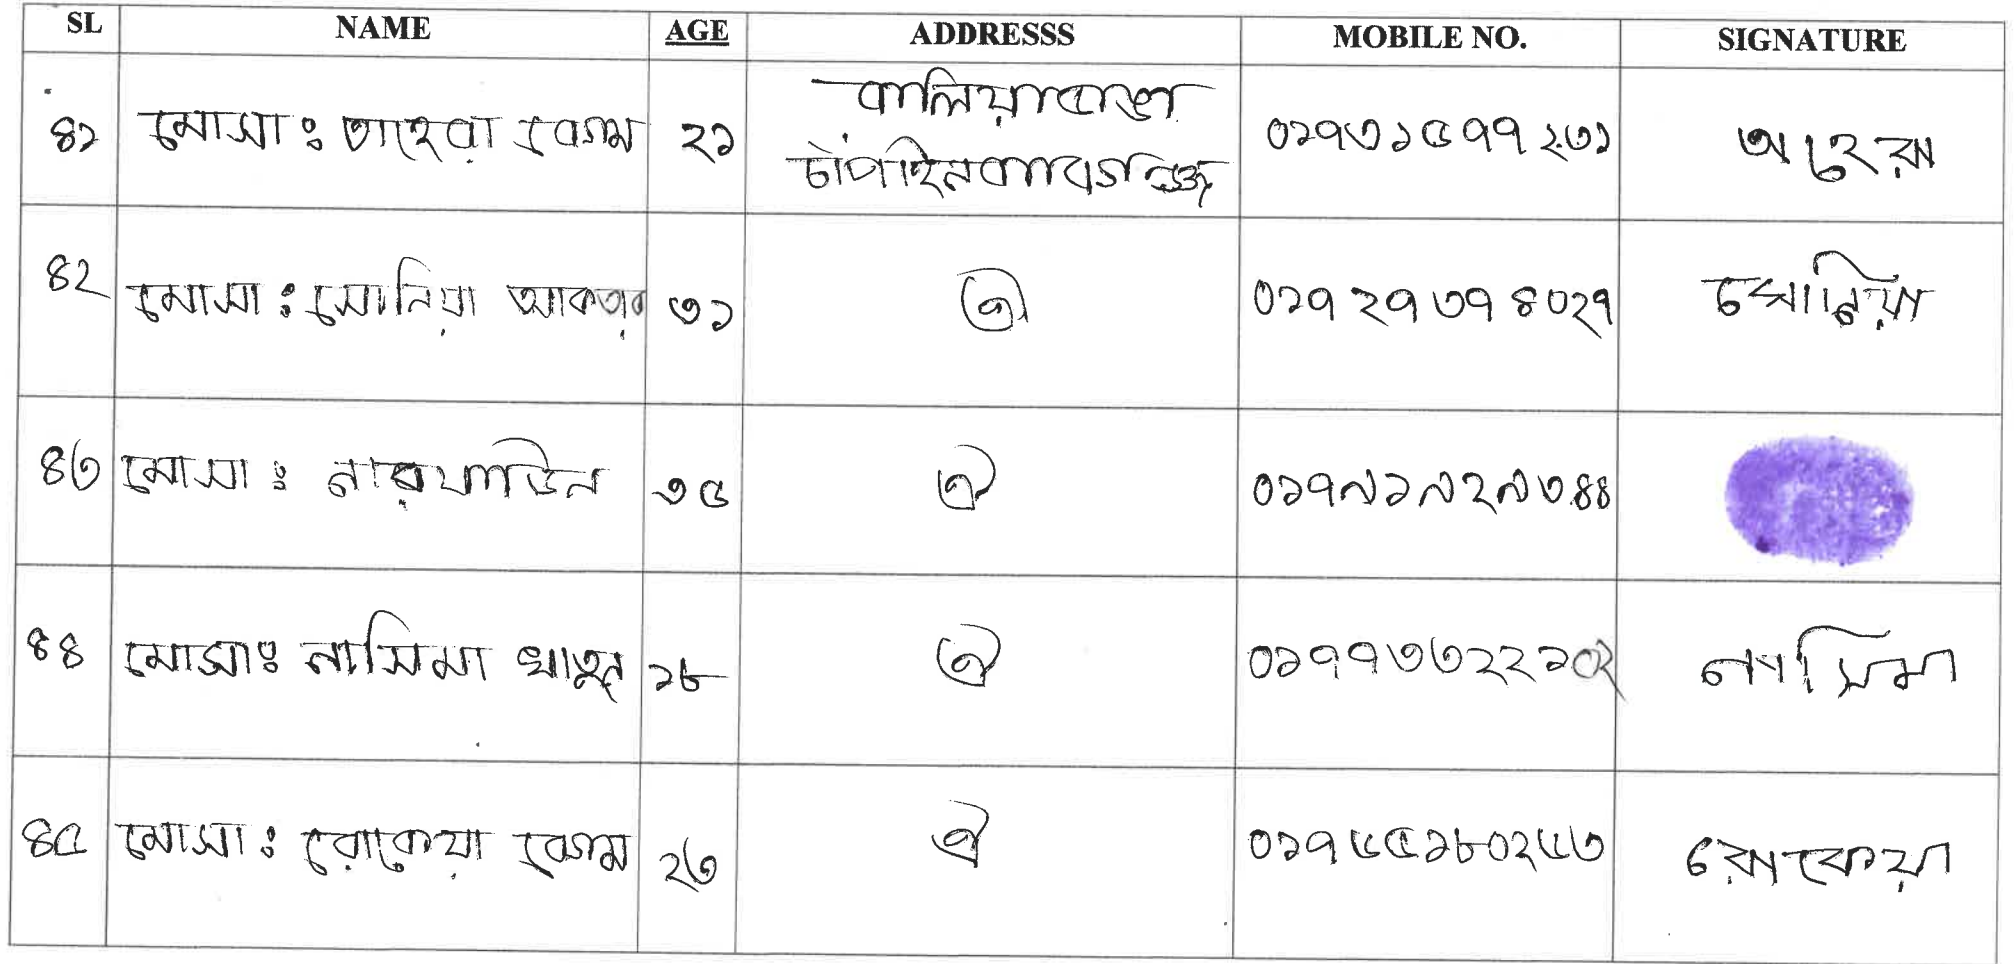 SL NAME AGE ADDRESSS MOBILE NO. SIGNATURE
বালিয়াডাঙ্গা
৪১ মোসা ঃ তাহেরা বেগম ২১ ০১৭৩১৫৭৭২৩১ তাহেরা
চাঁপাইনবাবগঞ্জ
৪২ মোসা ঃ সোনিয়া আকতার ৩১ ঐ ০১৭২৭৩৭৪০২৭ সোনিয়া
৪৩ মোসা ঃ ৩৫ ঐ ০১৭৯১৯২৯৩৪৪
৪৪ মোসাঃ নাসিমা খাতুন ১৮ ঐ ০১৭৭৩৩২২১০২ নাসিমা
৪৫ মোসা ঃ রোকেয়া বেগম ২৩ ঐ ০১৭৬৫১৮০২৬৩ রোকেয়া